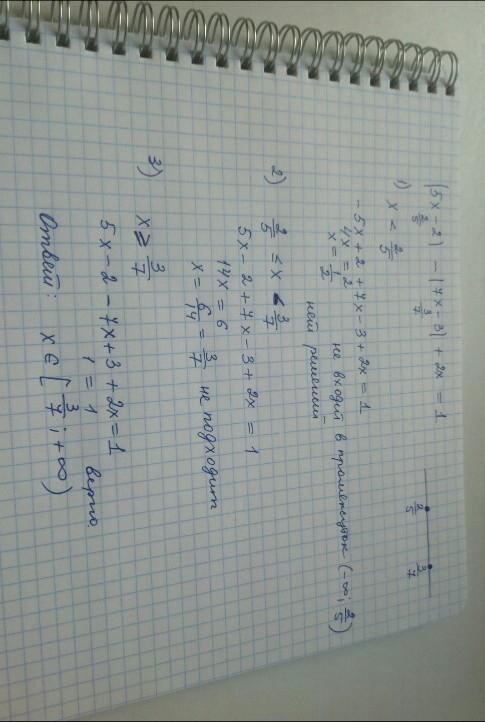 |5x-2| - |7x-3| + 2x = 1
2/5 3/7
2/5 3/7
1) x < 2/5
-5x+2 +7x-3+2x=1
4x = 2
x = 1/2 не входит в промежуток (-∞; 2/5)
нет решений
2) 2/5 ≤ x < 3/7
5x-2+7x-3+2x = 1
14x = 6
x = 6/14 = 3/7 не подходит
3) x ≥ 3/7
5x-2-7x+3+2x=1
1 = 1 верно
Ответ: x ∈ [3/7; +∞)